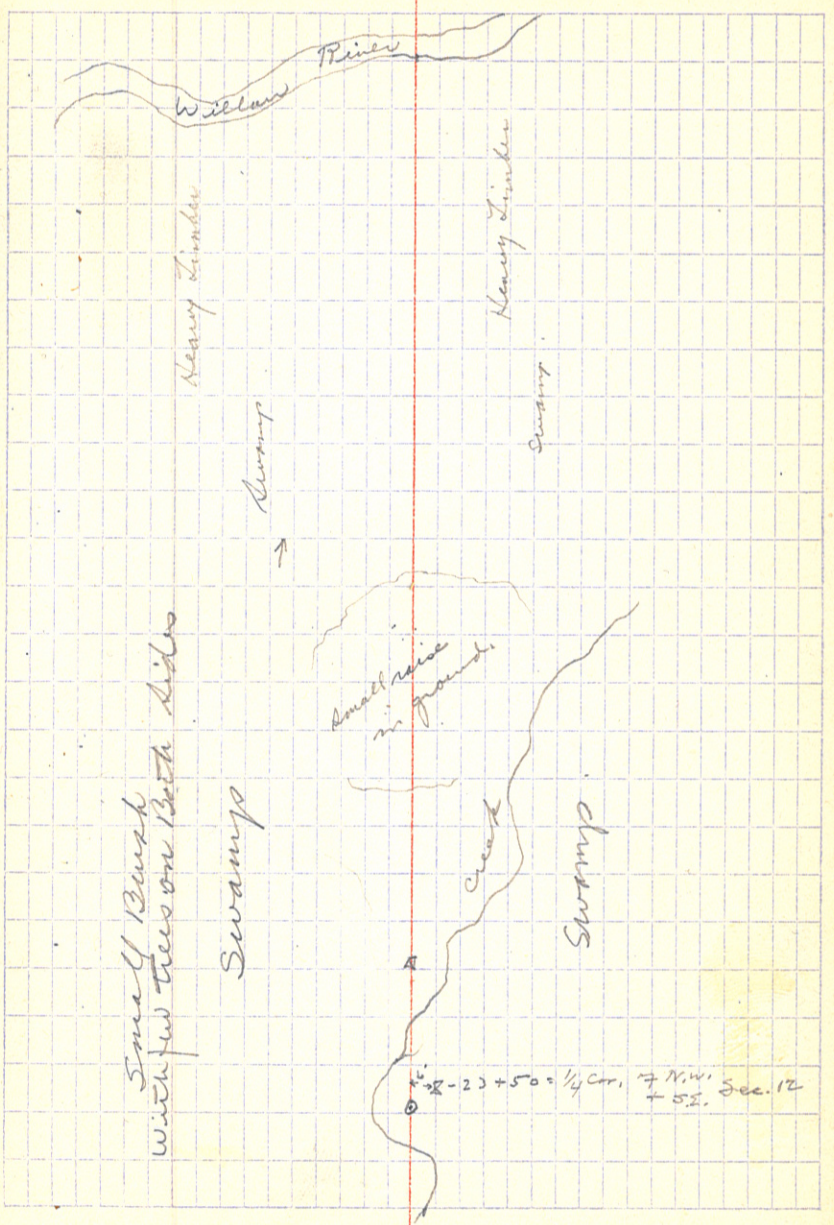 Willow River
Heavy Timber
Heavy Timber
Swamp
Swamp
small raise
in ground.
Small Brush
with few trees on Both Sides
Swamp
Creek
Swamp
-23+50 = 1/4 Cor.
N.W.
+ S.E. Sec. 12